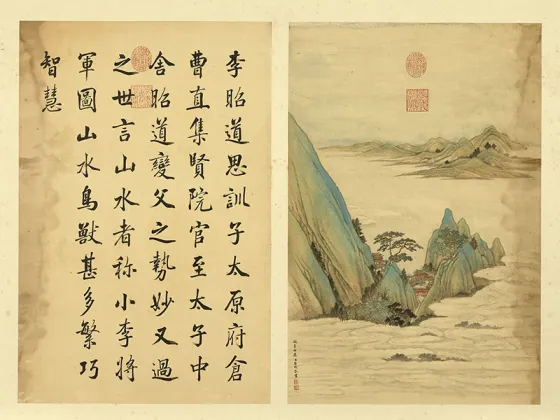 李昭道思訓子太原府倉
曹直集賢院官至太子中
舍昭道變父之勢妙又過
之世言山水者称小李將
軍圖山水鳥獣甚多繁巧
智慧